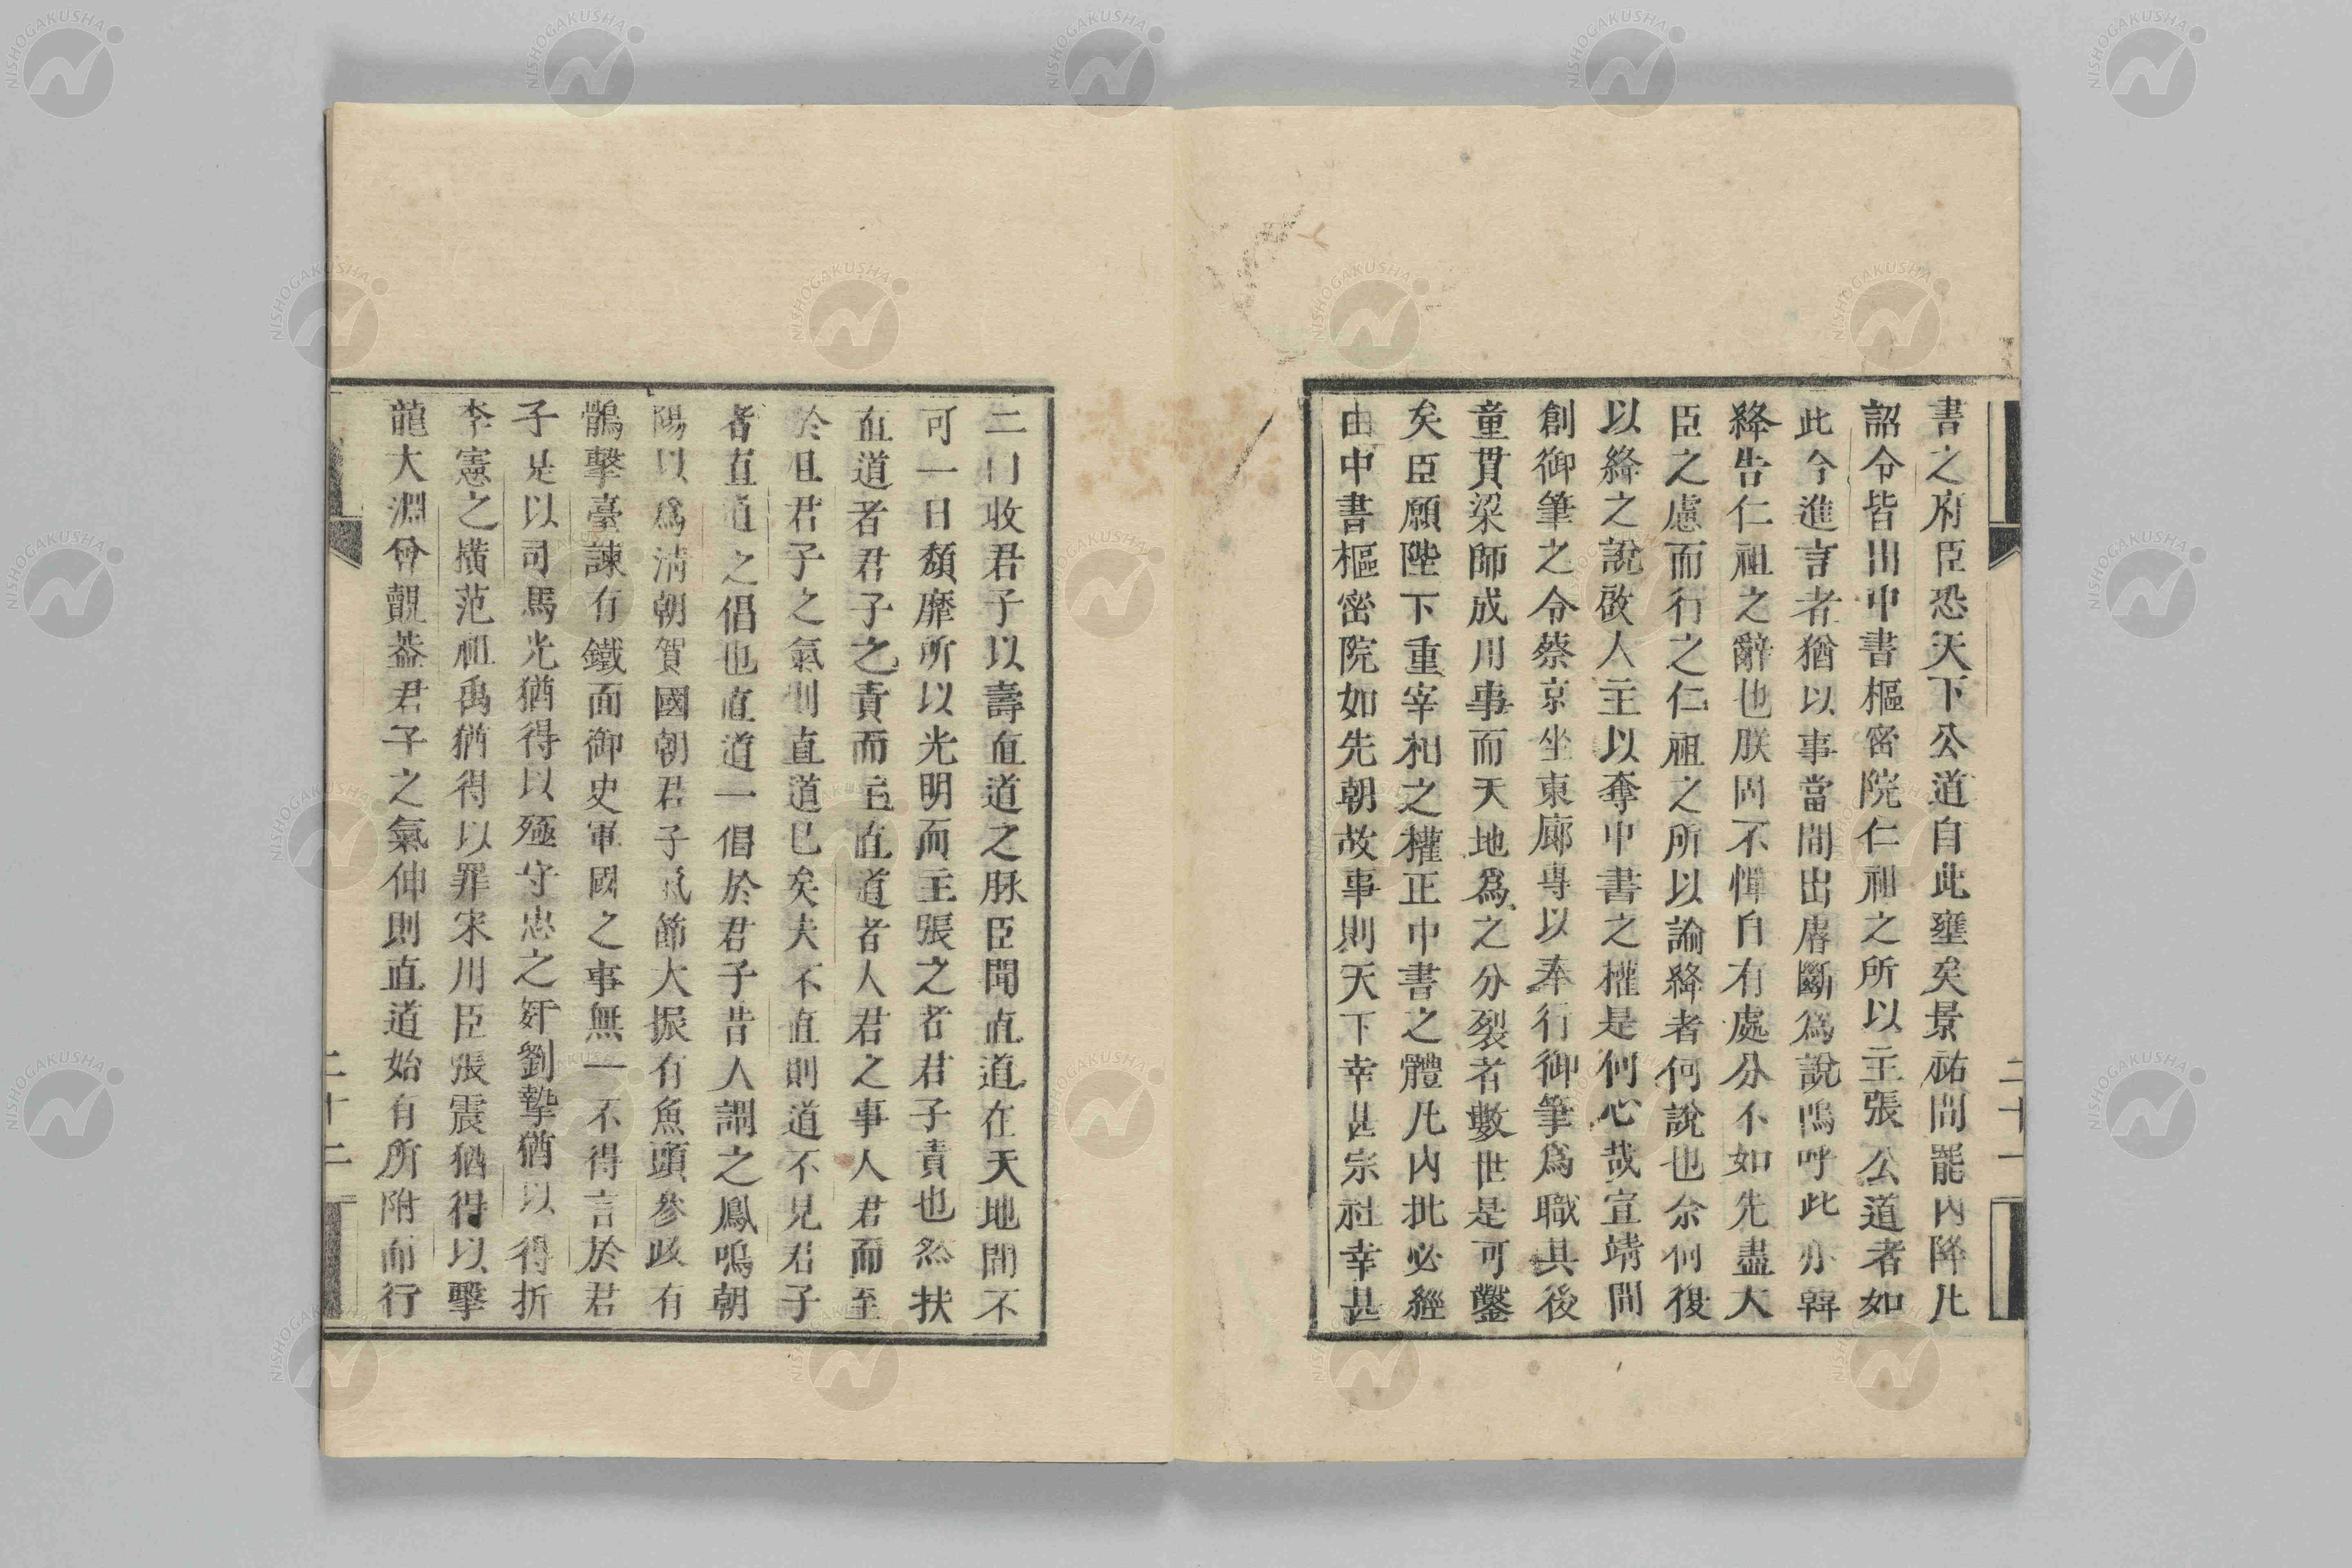 書之府臣恐天下公道自此壅矣景祐間罷內降凡
詔令皆出中書樞密院仁祖之所以主張公道者如
此今進言者猶以事當間出睿斷爲說嗚呼此亦韓
絳告仁祖之辭也朕固不憚自有處分不如先盡大
臣之慮而行之仁祖之所以論絳者何說也奈何復
以絳之說啟人主以奪中書之權是何心哉宣靖間
創御筆之令蔡京坐東廊專以奉行御筆爲職其後
童貫梁師成用事而天地爲之分裂者數世是可鑒
矣臣願陛下重宰相之權正中書之體凡內批必經
由中書樞密院如先朝故事則天下幸甚宗社幸甚
二十一
二曰收君子以壽直道之脉臣聞直道在天地間不
可一日頹靡所以光明而主張之者君子責也然扶
直道者君子之責而主直道者人君之事人君而至
於沮君子之氣則直道已矣夫不直則道不見君子
者直道之倡也直道一倡於君子昔人謂之鳳鳴朝
陽以爲清朝賀國朝君子氣節大振有魚頭參政有
鶻擊臺諫有鐵面御史軍國之事無一不得言於君
子是以司馬光猶得以殛守忠之奸劉摯猶以得折
李憲之橫范祖禹猶得以罪宋用臣張震猶得以擊
龍大淵曾覿蓋君子之氣伸則直道始有所附而行
二十二
NISHOGAKUSHA